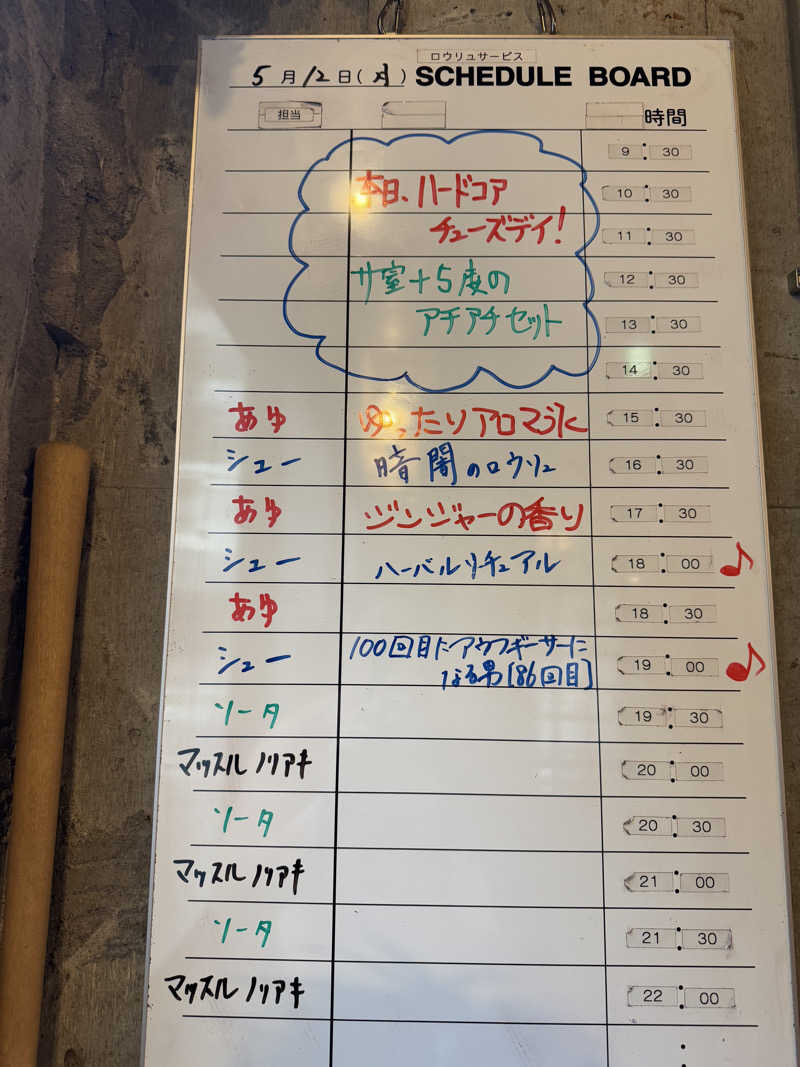 ロウリュサービス
5月12日(火) SCHEDULE BOARD
担当 時間
9:30
本日、ハードコア 10:30
チューズデイ! 11:30
サ室+5度の 12:30
アチアチセット 13:30
14:30
あゆ ゆったりアロマ氷 15:30
シュー 暗闇のロウリュ 16:30
あゆ ジンジャーの香り 17:30
シュー ハーバルリチュアル 18:00 ♪
あゆ 18:30
シュー 100回目にアウフギーサーに 19:00 ♪
なる男[86回目]
ソータ 19:30
マッスルノリアキ 20:00
ソータ 20:30
マッスルノリアキ 21:00
ソータ 21:30
マッスルノリアキ 22:00
: